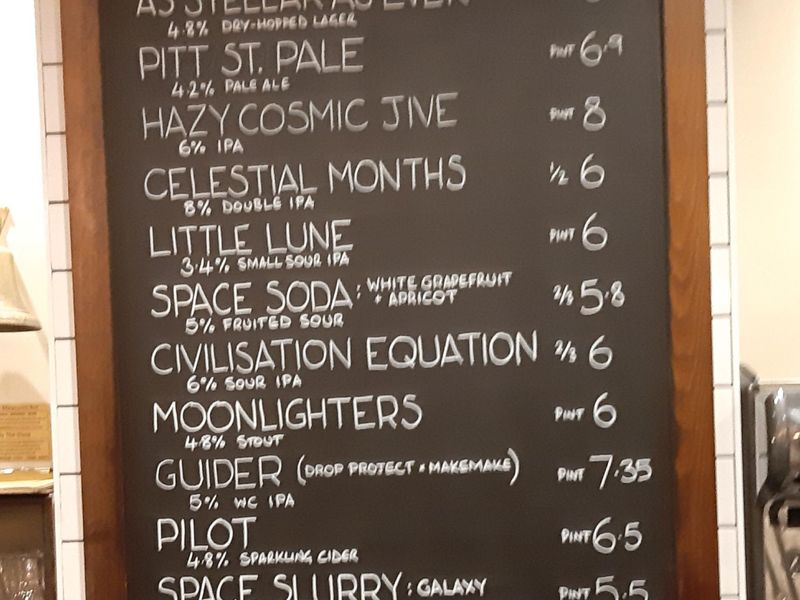 AS STELLAR AS EVER
4.8% DRY-HOPPED LAGER
PITT ST. PALE PINT 6.9
4.2% PALE ALE
HAZY COSMIC JIVE PINT 8
6% IPA
CELESTIAL MONTHS 1/2 6
8% DOUBLE IPA
LITTLE LUNE PINT 6
3.4% SMALL SOUR IPA
SPACE SODA: WHITE GRAPEFRUIT 2/3 5.8
+ APRICOT
5% FRUITED SOUR
CIVILISATION EQUATION 2/3 6
6% SOUR IPA
MOONLIGHTERS PINT 6
4.8% STOUT
GUIDER (DROP PROJECT × MAKEMAKE) PINT 7.35
5% WC IPA
PILOT PINT 6.5
4.8% SPARKLING CIDER
SPACE SLURRY: GALAXY PINT 5.5